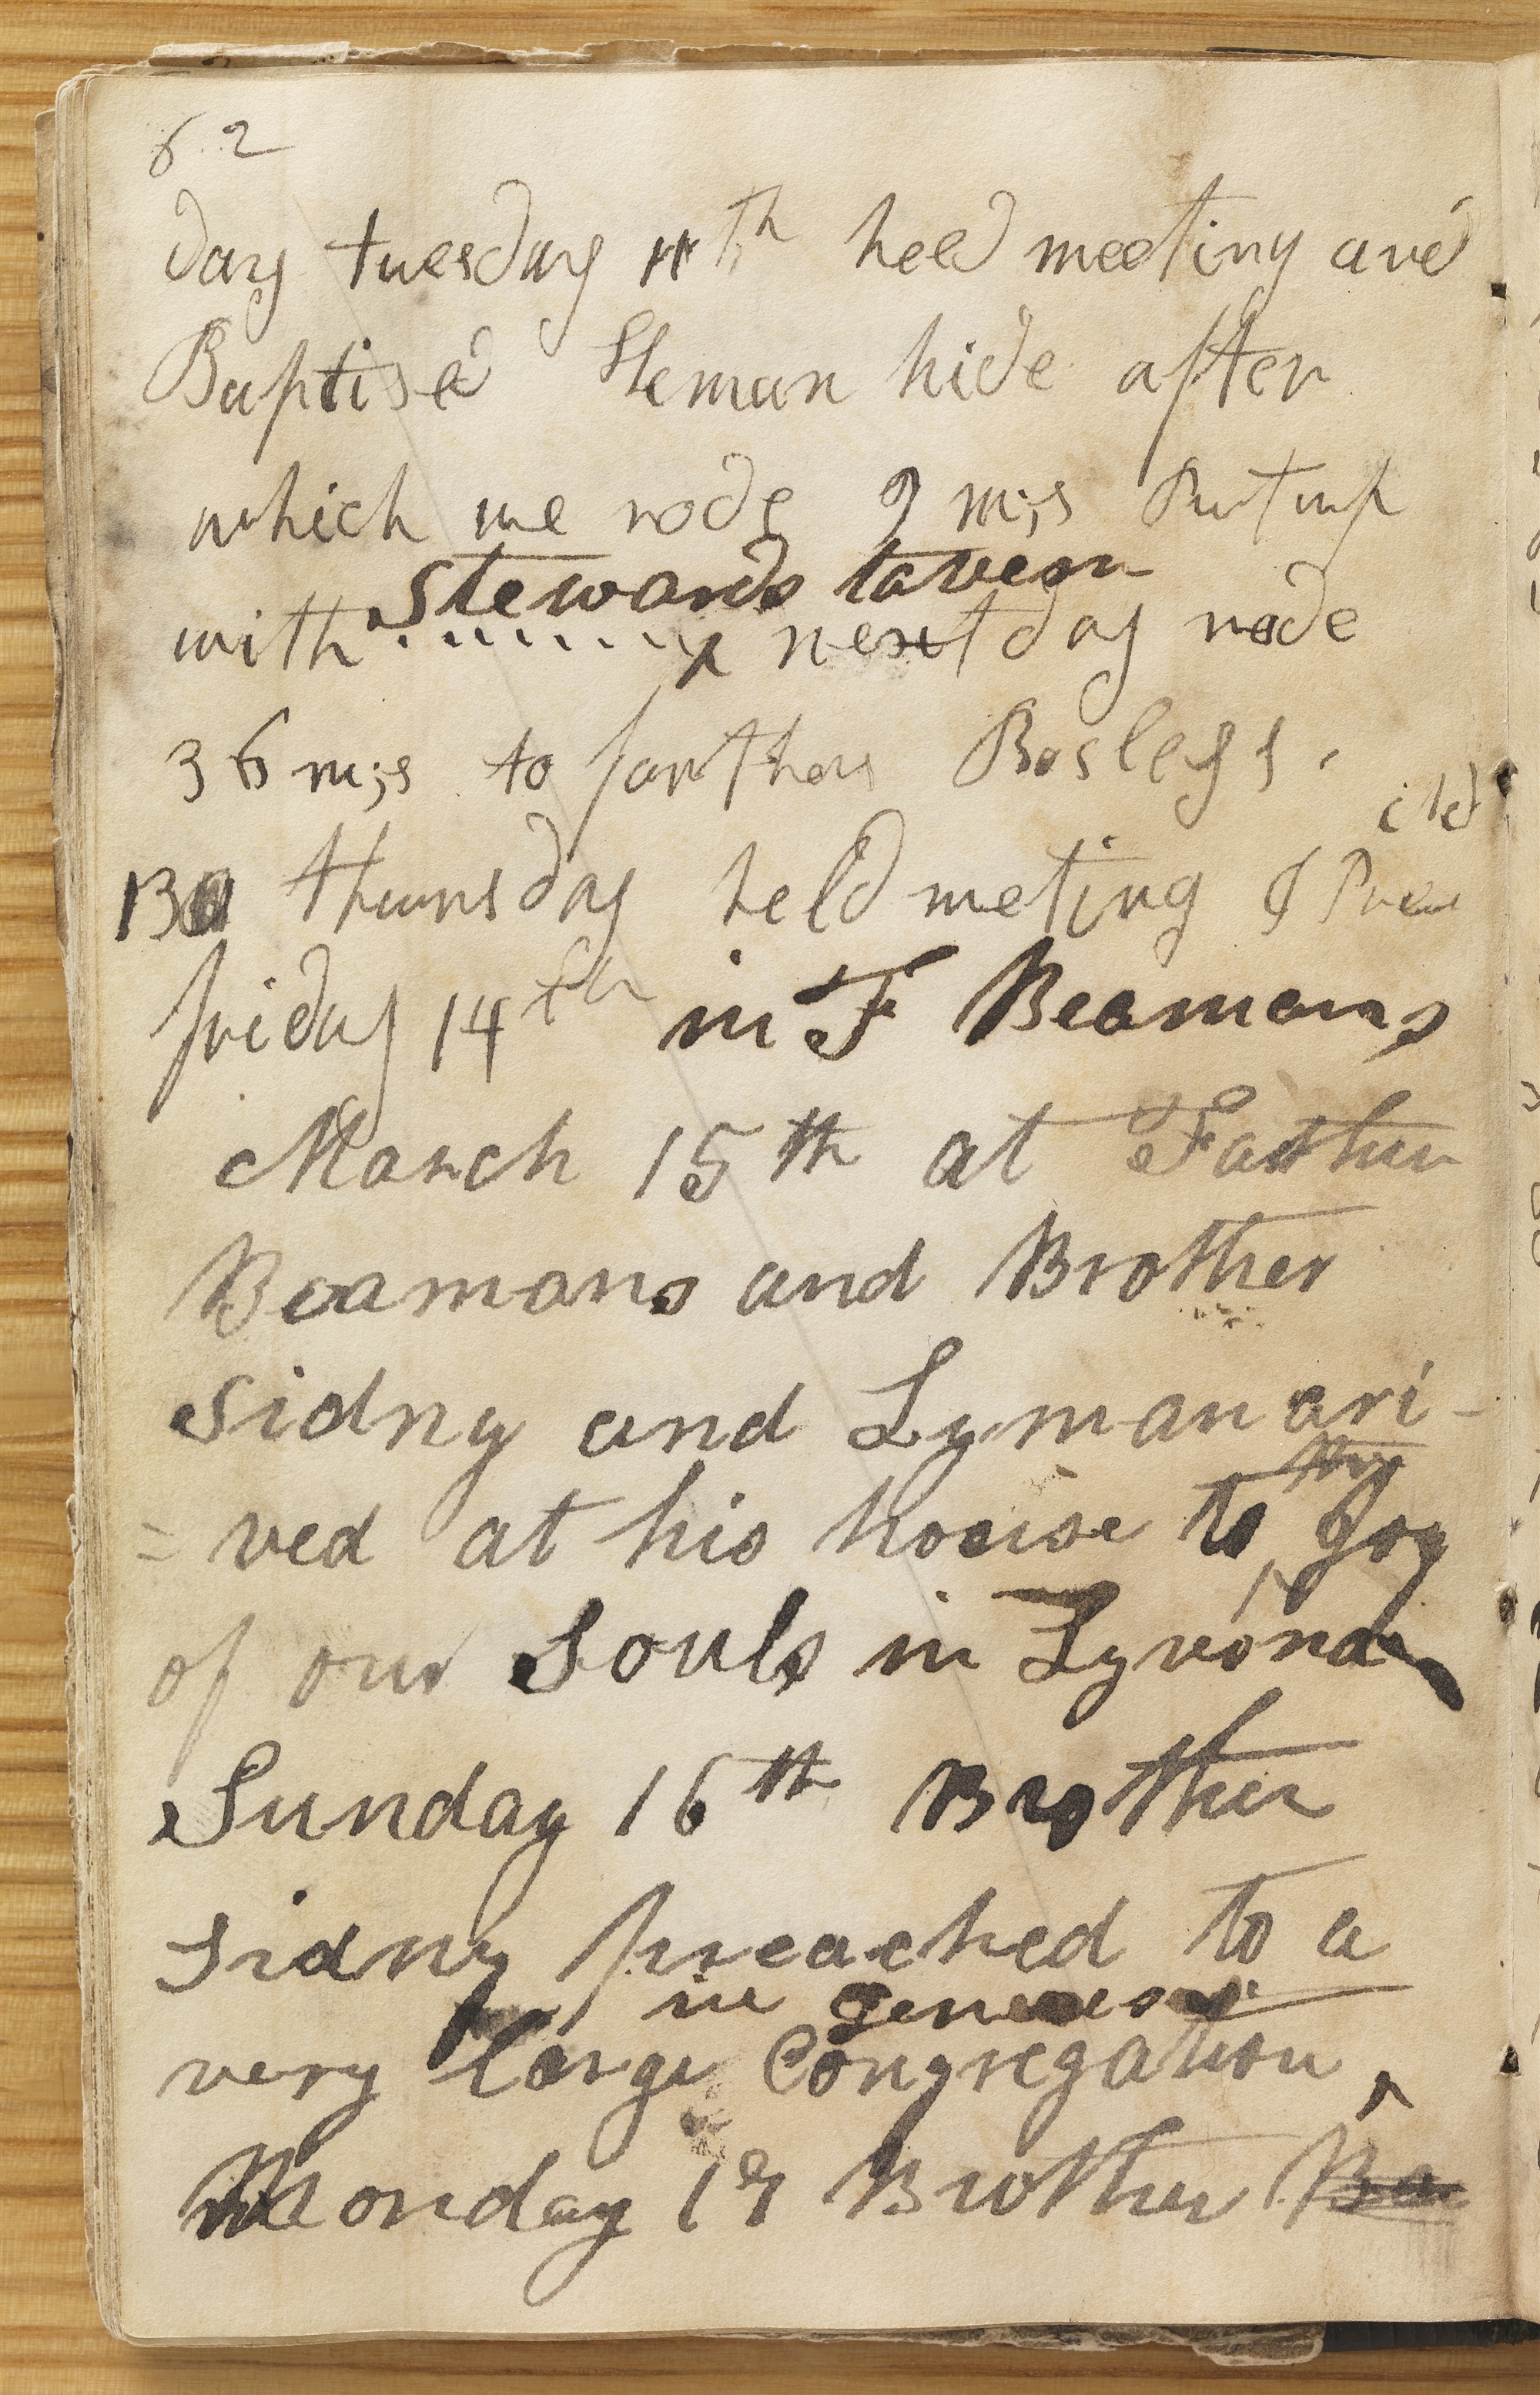 62
day tuesday 11th held meeting and
Baptised Heman hide after
which we rode 9 m;s Put up
with Stewards tavern
next day rode
36 m;s to farthers Bosleys.
13 thursday held meting & Preacitd
friday 14th in F Beamans
March 15th at Father
Beamans and Brother
Sidny and Lyman ari-
=ved at his house to the Joy
of our Souls in Lyvona
Sunday 16th Brother
Sidny preached to a
very large Congregation in geneseo
Monday 17 Brother